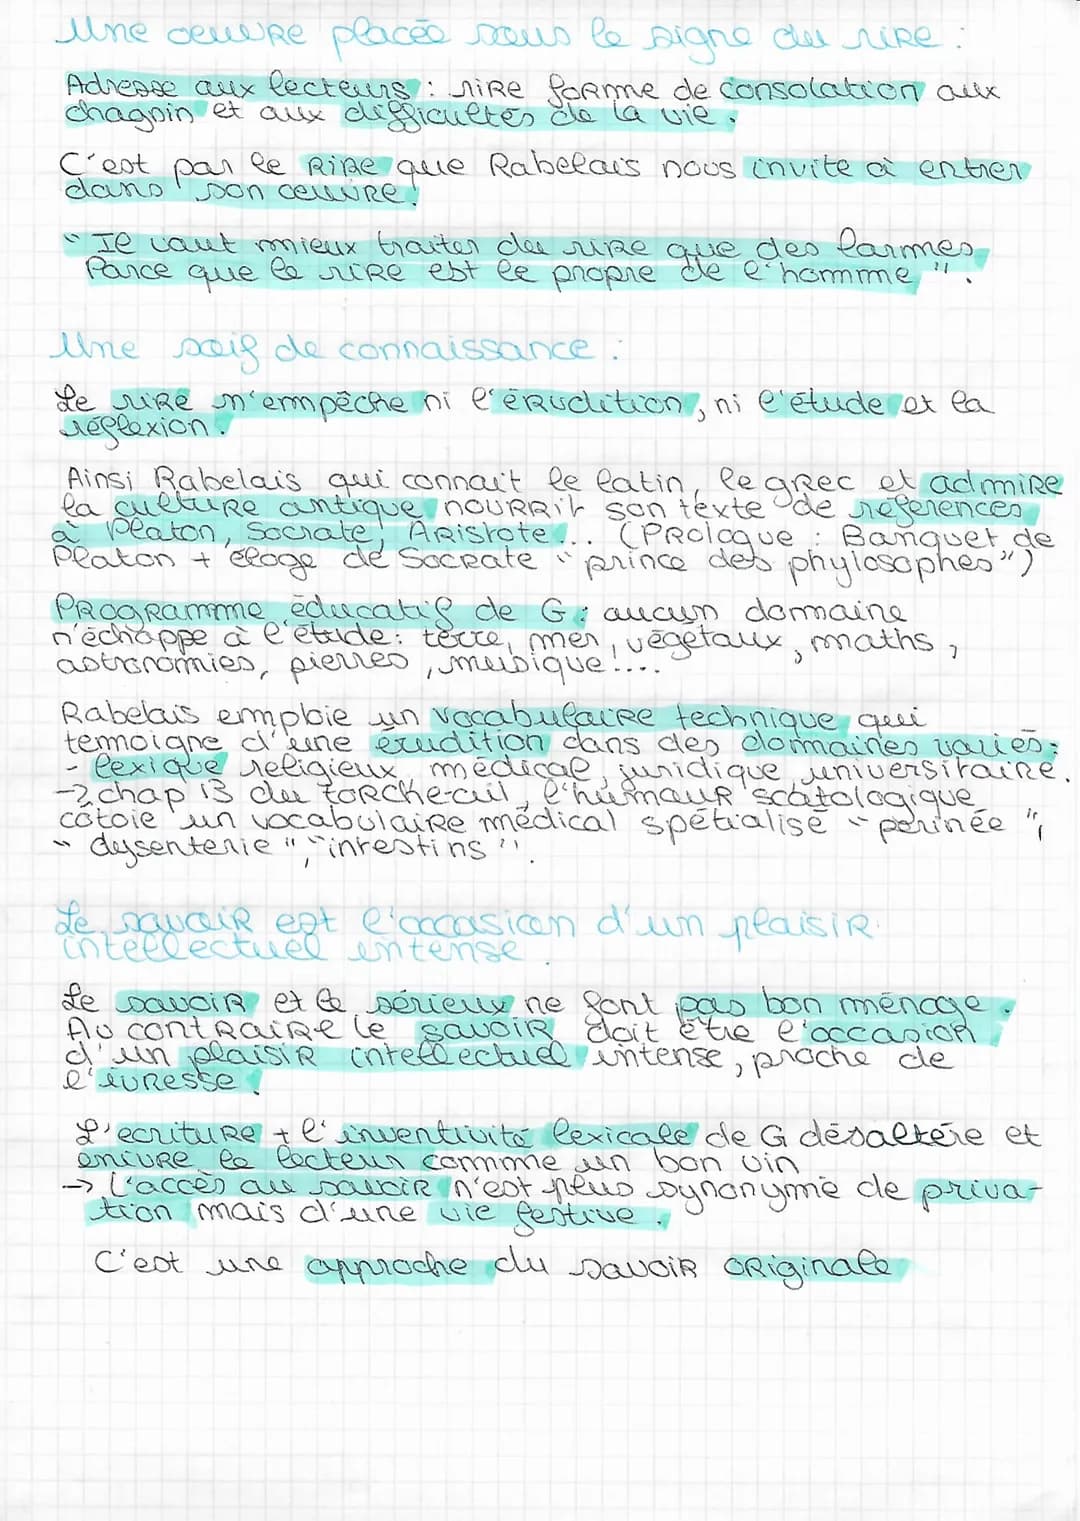 Une oeuvre placée sous le signe du rire :
Adresse aux lecteurs : rire forme de consolation aux
chagrin et aux difficultés de la vie.
C'est par le rire que Rabelais nous invite à entrer
dans son oeuvre.
" Il vaut mieux traiter du rire que des larmes
Parce que le rire est le propre de l'homme ".
Une soif de connaissance :
Le rire n'empêche ni l'érudition, ni l'étude et la
réflexion.
Ainsi Rabelais qui connait le latin, le grec et admire
la culture antique nourrit son texte de références
à Platon, Socrate, Aristote... (Prologue : Banquet de
Platon + éloge de Socrate " prince des phylosophes")
Programme éducatif de G : aucun domaine
n'échappe à l'étude : terre, mer, végetaux, maths,
astronomies, pierres, musique!...
Rabelais emploie un vocabulaire technique qui
temoigne d'une érudition dans des domaines variés :
- lexique religieux, médical, juridique universitaire.
-> chap 13 du torche-cul, l'humour scatologique
cotoie un vocabulaire médical spétialisé " perinée ",
" dysenterie ", "intestins ".
Le savoir est l'occasion d'un plaisir
intellectuel intense.
Le savoir et le sérieux ne font pas bon ménage.
Au contraire le savoir doit être l'occasion
d'un plaisir intellectuel intense, proche de
l'ivresse.
L'ecriture + l'inventivité lexicale de G désaltére et
enivre le lecteur comme un bon vin
-> L'accès au savoir n'est plus synonyme de priva-
tion mais d'une vie festive.
C'est une approche du savoir originale